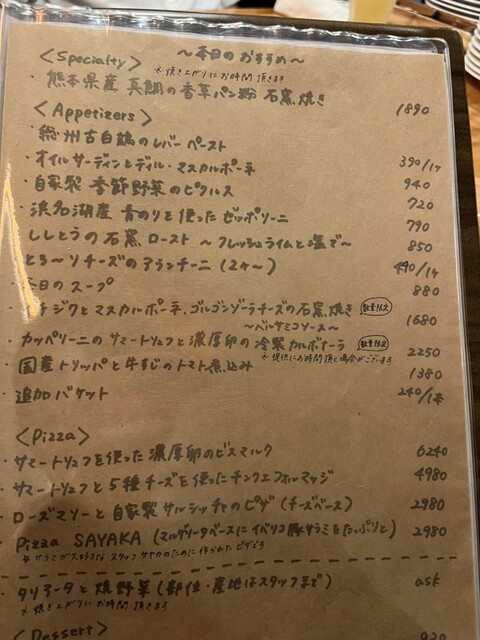 〜本日のおすすめ〜
<Specialty>
※焼き上がりにお時間頂きます
・熊本県産 真鯛の香草パン粉 石窯焼き 1890
<Appetizers>
・総州古白鶏のレバーペースト 390/1ヶ
・オイルサーディンとディル・マスカルポーネ 940
・自家製 季節野菜のピクルス 720
・浜名湖産 青のりを使った ゼッポリーニ 790
・ししとうの石窯ロースト 〜フレッシュライムと塩で〜 850
・とろ〜りチーズのアランチーニ(2ヶ〜) 440/1ヶ
・本日のスープ 880
チジクとマスカルポーネ、ゴルゴンゾーラチーズの石窯焼き 数量限定 1680
〜バルサミコソース〜
・カッペリーニのサマートリュフと濃厚卵の冷製カルボナーラ 数量限定 2250
※提供にお時間頂く場合がございます
・国産トリッパと牛すじのトマト煮込み 1380
・追加バケット 240/1本
<Pizza>
・サマートリュフを使った濃厚卵のビスマルク 6240
・サマートリュフと5種チーズを使ったチンクエフォルマッジ 4980
・ローズマリーと自家製サルシッチャのピザ(チーズベース) 2980
・Pizza SAYAKA (マルゲリータベースにイベリコ豚サラミをたっぷりと) 2980
※サラミが大好きなスタッフサヤカのために作られたピザです
・タリアータと焼野菜(部位・産地はスタッフまで) ask
※焼き上がりにお時間頂きます
<Dessert>